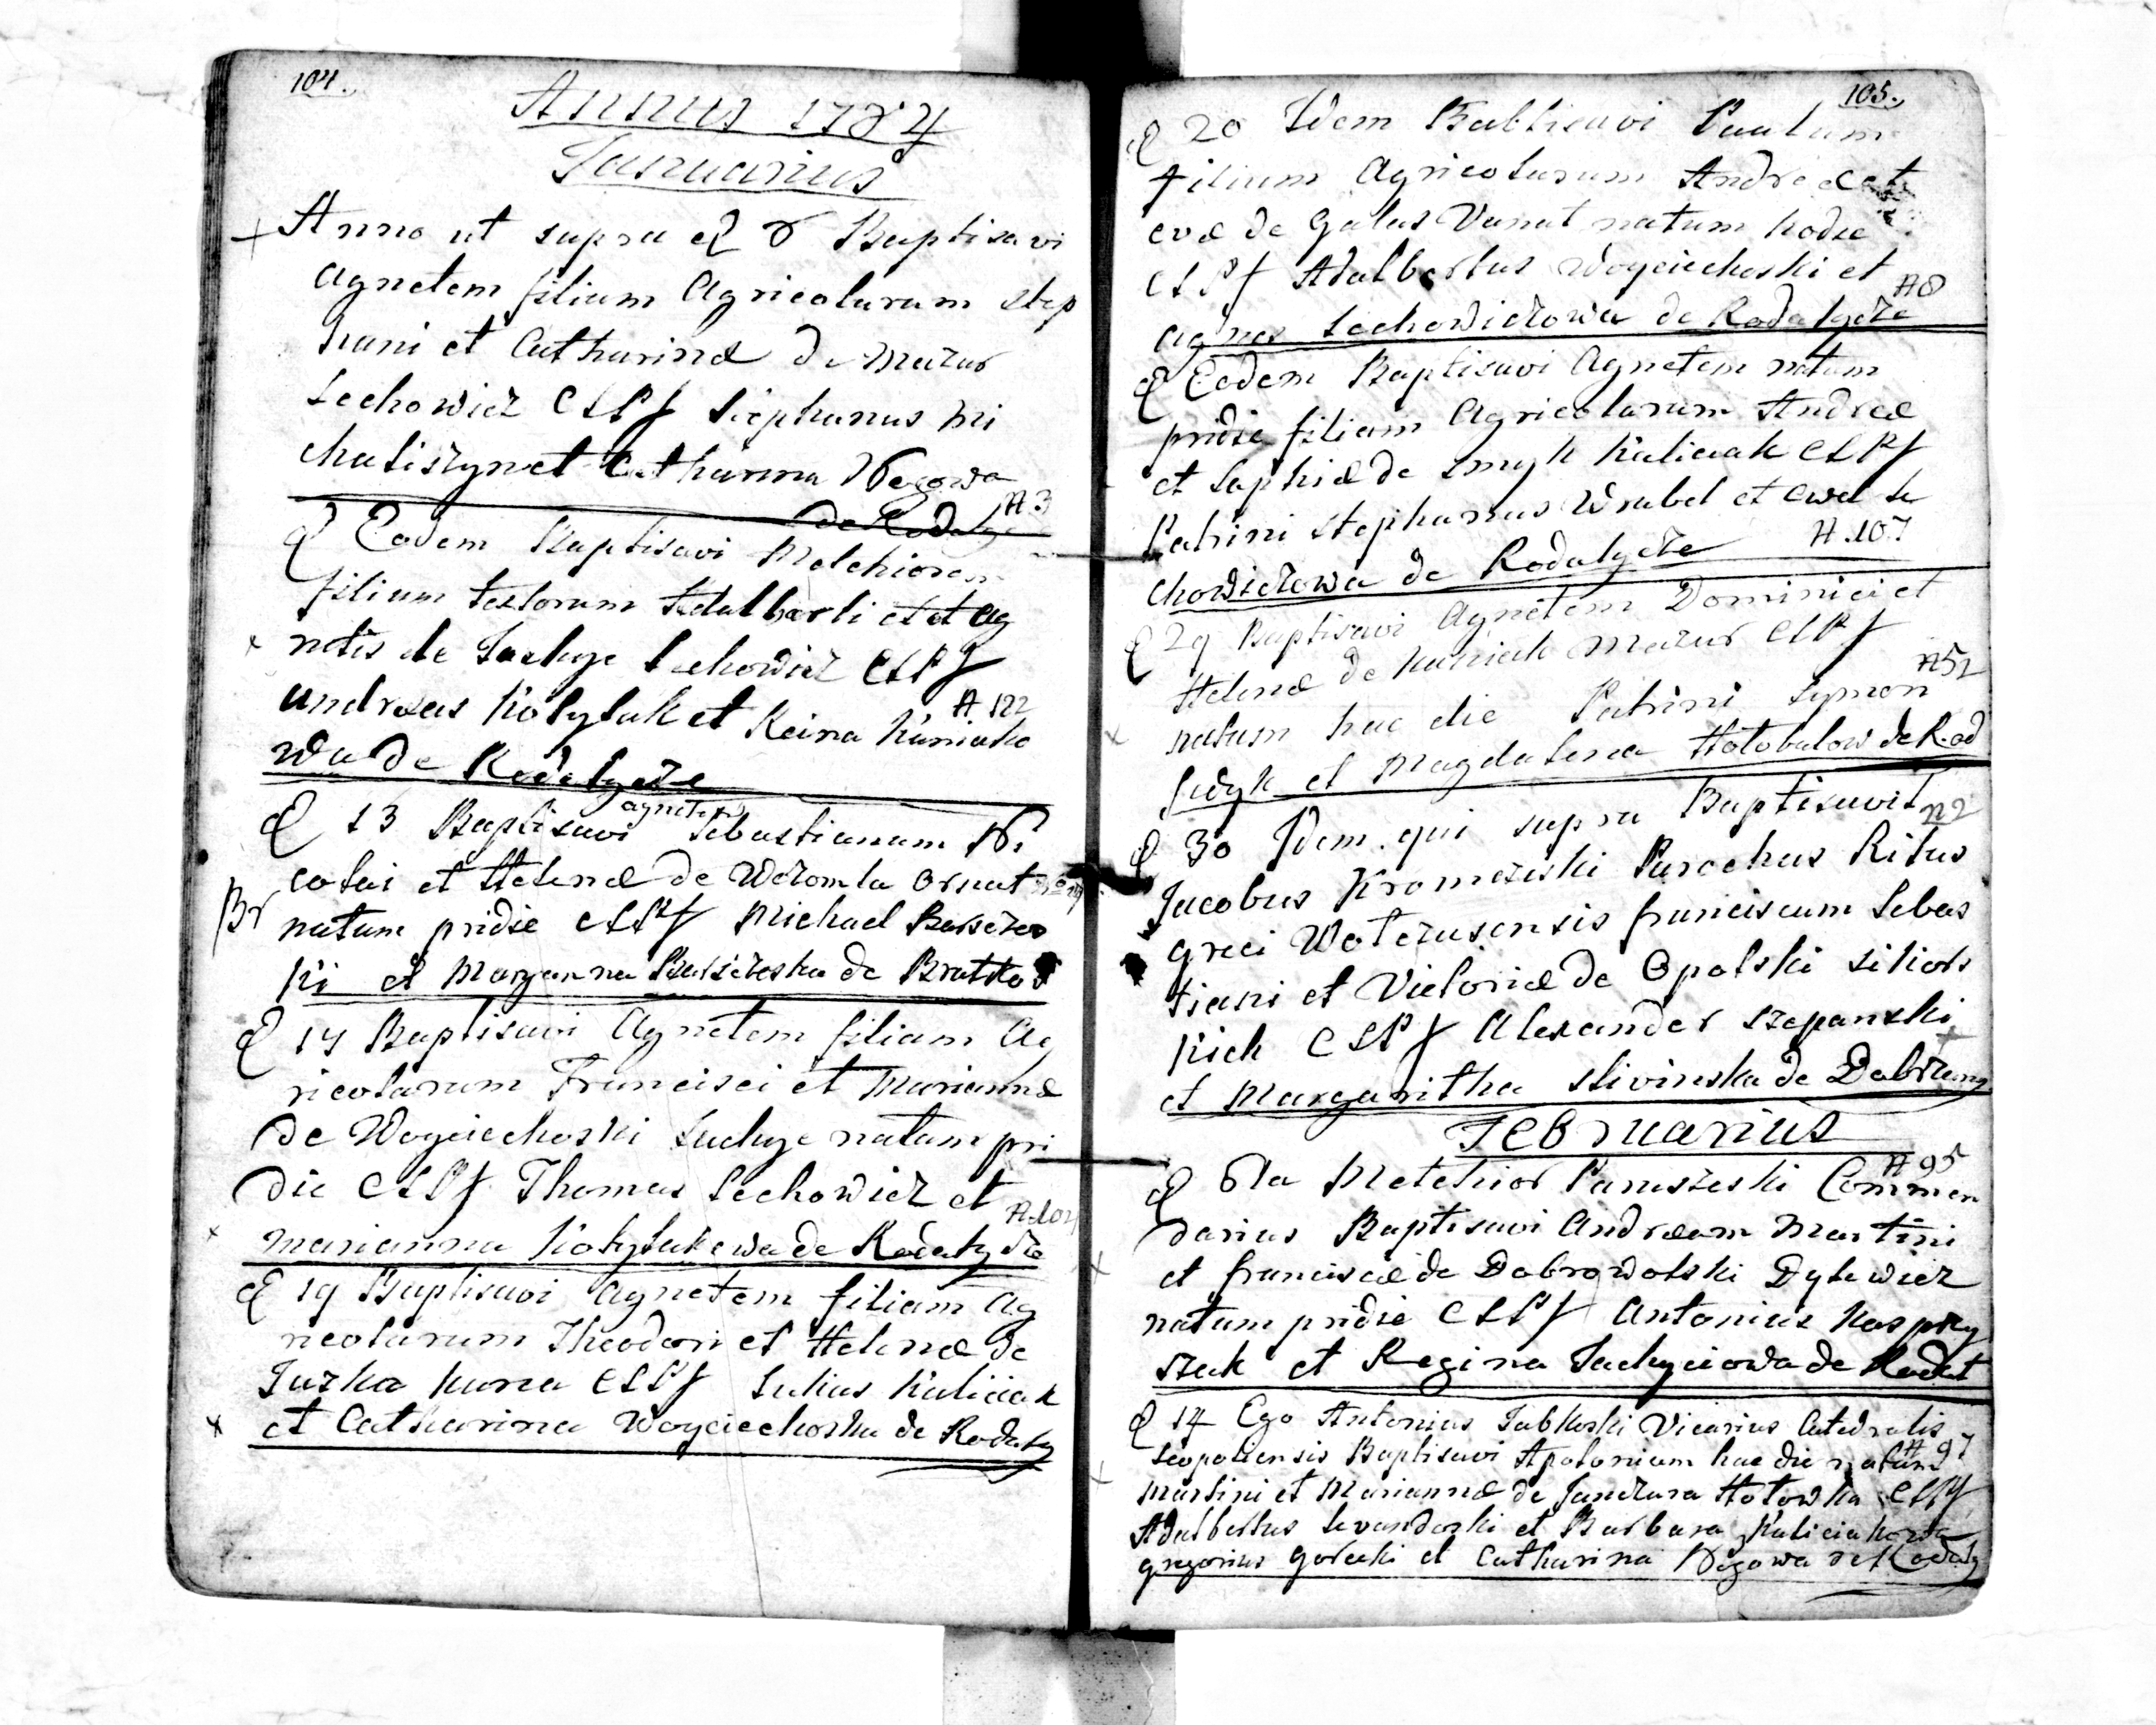 104.
Annus 1784
Januarius
Anno ut supra d 8 Baptisavi
Agnetem filium Agricolarum Step
hani et Catharinæ de Mazur
Lechowicz CLPf Stephanus Mi
chaliszyn et Catharina Nogowa
de Rodaly A 3
d Eodem Baptisavi Melchiorem
filium textorum Adalberti et et Ag
netis de Suchye Lechowicz CLPf
Andreas Kotyluk et Reina Kuniako A 122
wa de Rodalycze
d 13 Baptisavi Agnetem Sebastianum Ni
colai et Helenæ de Wczomla Ornat
Br natum pridie CLPf Michael Barszczew
ki et Maryanna Barszczeska de Bratko
d 14 Baptisavi Agnetem filiam Ag
ricolarum Francisci et Mariannæ
de Woyciechoski Suchye natam pri
die CLPf Thomas Lechowicz et
Marianna Kotylukowa de Rodalycze A 104
d 19 Baptisavi Agnetem filiam Ag
ricolarum Theodori et Helenæ de
Juzka Kuna CLPf Lukas Kuliciak
et Catharina Woyciechoska de Rodaly
105.
d 20 Idem Babtisavi Paulum
filium Agricolarum Andreæ et
Evæ de Galas Vanat natum hodie
CLPf Adalbertus Woyciechoski et
Agnes Lechowiczowa de Rodalycze A 8
d Eodem Baptisavi Agnetem natam
pridie filiam Agricolarum Andreæ
et Sophiæ de Smyk Kuliciak CLPf
Patrini Stephanus Wrubel et Ewa Le
chowiczowa de Rodalycze A.107
d 29 Baptisavi Agnetem Dominici et
Helenæ de Kuniak Mazur CLPf
natam hac die Patrini Symon A 52
Jedyk et Magdalena Hołobutow de Rod
d 30 Idem qui supra Baptisavit N 2
Jacobus Kromczeski Parochus Ritus
greci Woterusensis franciscum Sebas
tiani et Victoriæ de Opolski Sikors
kich CLPf Alexander Szepanski
et Margaritha Slivinska de Dabrzany
Februarius
d 8va Melchior Paniszeski Commen A 95
darius Baptisavi Andream Martini
et francisæ de Dobrowolski Dylewicz
natum pridie CLPf Antonius Kaspry
szak et Regina Suchyciowa de Rodat
d 14 Ego Antonius Jabkoski Vicarius Catedralis
Leopoliensis Baptisavi Apolonium hac die natum A 97
Martini et Mariannæ de Janczura Hołowka CLPf
Adalbertus Levandoski et Barbara Kuliciakowa
gregorius Gorecki et Catharina Nogowa de Rodaly